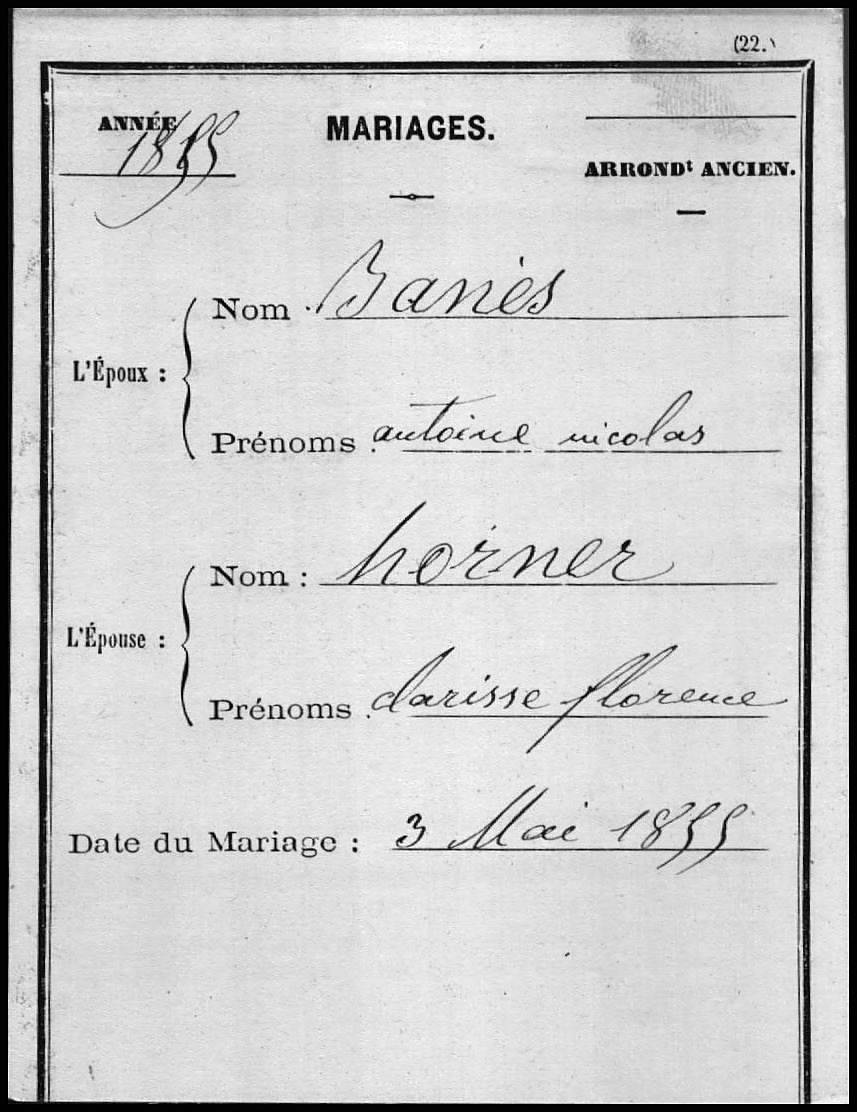 (22.)
ANNÉE
1855
MARIAGES.
ARROND^t ANCIEN.
Nom : Banès
L'Époux :
Prénoms : antoine nicolas
Nom : horner
L'Épouse :
Prénoms : clarisse florence
Date du Mariage : 3 Mai 1855